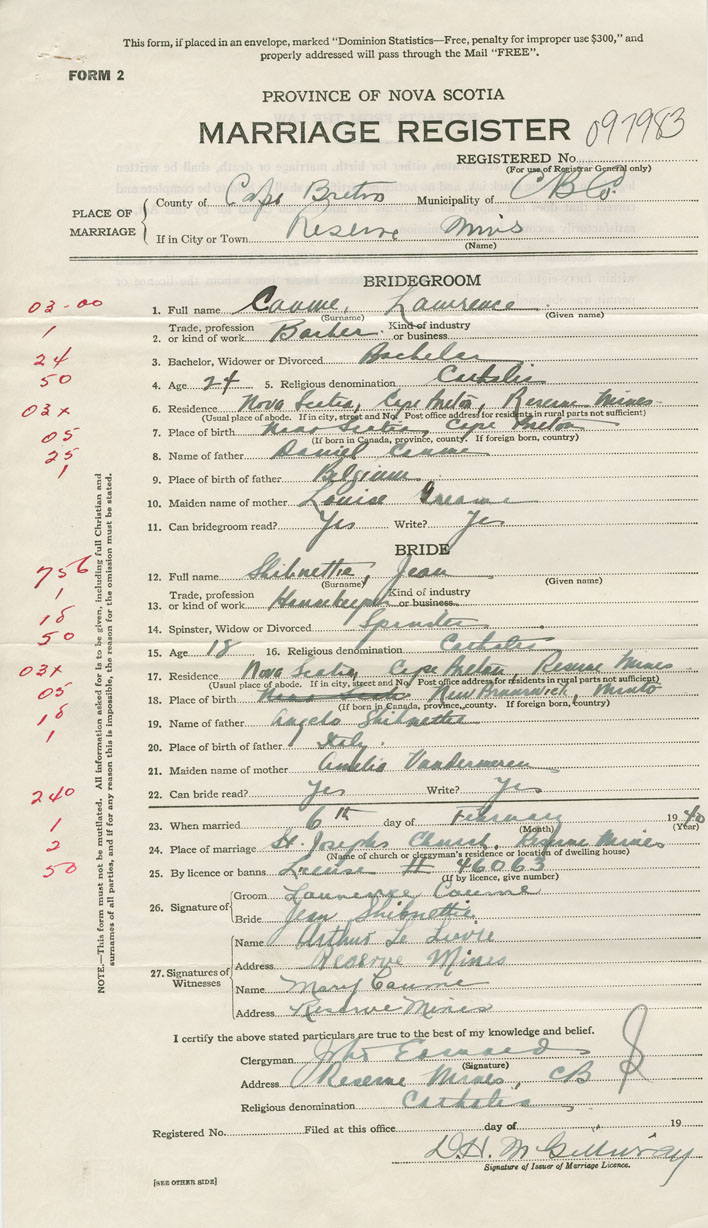 This form, if placed in an envelope, marked "Dominion Statistics—Free, penalty for improper use $300," and
properly addressed will pass through the Mail "FREE".
FORM 2
PROVINCE OF NOVA SCOTIA
MARRIAGE REGISTER 097983
REGISTERED No.
(For use of Registrar General only)
PLACE OF MARRIAGE
County of Cape Breton Municipality of C B Co.
If in City or Town Reserve Mines
(Name)
BRIDEGROOM
03-00
1. Full name Caume, Lawrence
(Surname) (Given name)
1
2. Trade, profession or kind of work Barber Kind of industry or business
24
3. Bachelor, Widower or Divorced Bachelor
50
4. Age 24 5. Religious denomination Catholic
03x
6. Residence Nova Scotia, Cape Breton, Reserve Mines
(Usual place of abode. If in city, street and No. Post office address for residents in rural parts not sufficient)
05
7. Place of birth Nova Scotia, Cape Breton
(If born in Canada, province, county. If foreign born, country)
25
8. Name of father Daniel Caume
1
9. Place of birth of father Belgium
10. Maiden name of mother Louise
11. Can bridegroom read? Yes Write? Yes
BRIDE
756
12. Full name Shibnettie, Jean
(Surname) (Given name)
1
13. Trade, profession or kind of work Housekeeper Kind of industry or business
18
14. Spinster, Widow or Divorced Spinster
50
15. Age 18 16. Religious denomination Catholic
03x
17. Residence Nova Scotia, Cape Breton, Reserve Mines
(Usual place of abode. If in city, street and No. Post office address for residents in rural parts not sufficient)
05
18. Place of birth Nova Scotia New Brunswick, Minto
(If born in Canada, province, county. If foreign born, country)
18
19. Name of father Angelo Shibnettie
1
20. Place of birth of father Italy
21. Maiden name of mother Amelia Vandermeren
22. Can bride read? Yes Write? Yes
240
23. When married 6th day of February 1940
(Month) (Year)
1
2
24. Place of marriage St. Josephs Church, Reserve Mines
(Name of church or clergyman's residence or location of dwelling house)
50
25. By licence or banns License # 46063
(If by licence, give number)
26. Signature of
Groom Lawrence Caume
Bride Jean Shibnettie
27. Signatures of Witnesses
Name Arthur Le Livre
Address Reserve Mines
Name Mary Caume
Address Reserve Mines
I certify the above stated particulars are true to the best of my knowledge and belief.
Clergyman
(Signature)
Address Reserve Mines, CB
Religious denomination Catholic
Registered No. Filed at this office day of 19
D.H. McGillivray
Signature of Issuer of Marriage Licence.
[SEE OTHER SIDE]
NOTE.—This form must not be mutilated. All information asked for is to be given, including full Christian and
surnames of all parties, and if for any reason this is impossible, the reason for the omission must be stated.